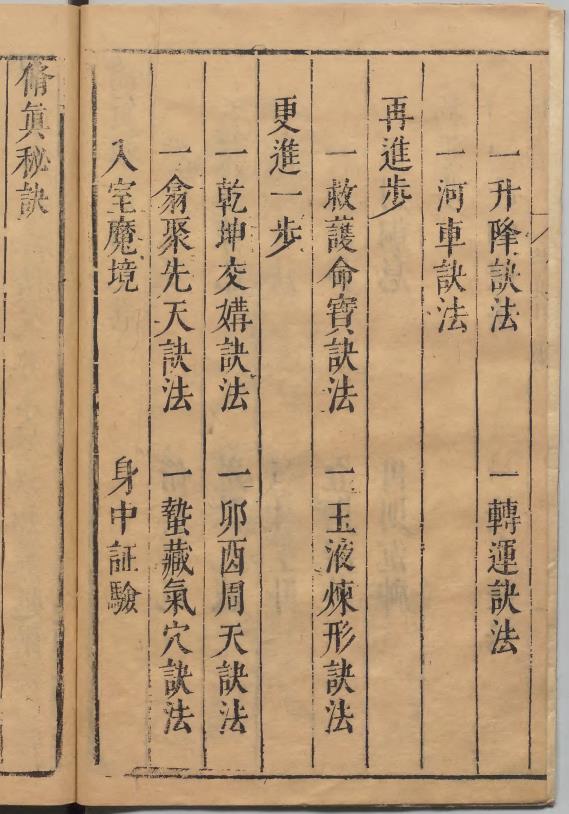 一升降訣法　一轉運訣法
一河車訣法
再進步
一救護命寶訣法　一玉液煉形訣法
更進一步
一乾坤交媾訣法　一卯酉周天訣法
一翕聚先天訣法　一蟄藏氣穴訣法
入室魔境　身中証驗
脩真秘訣